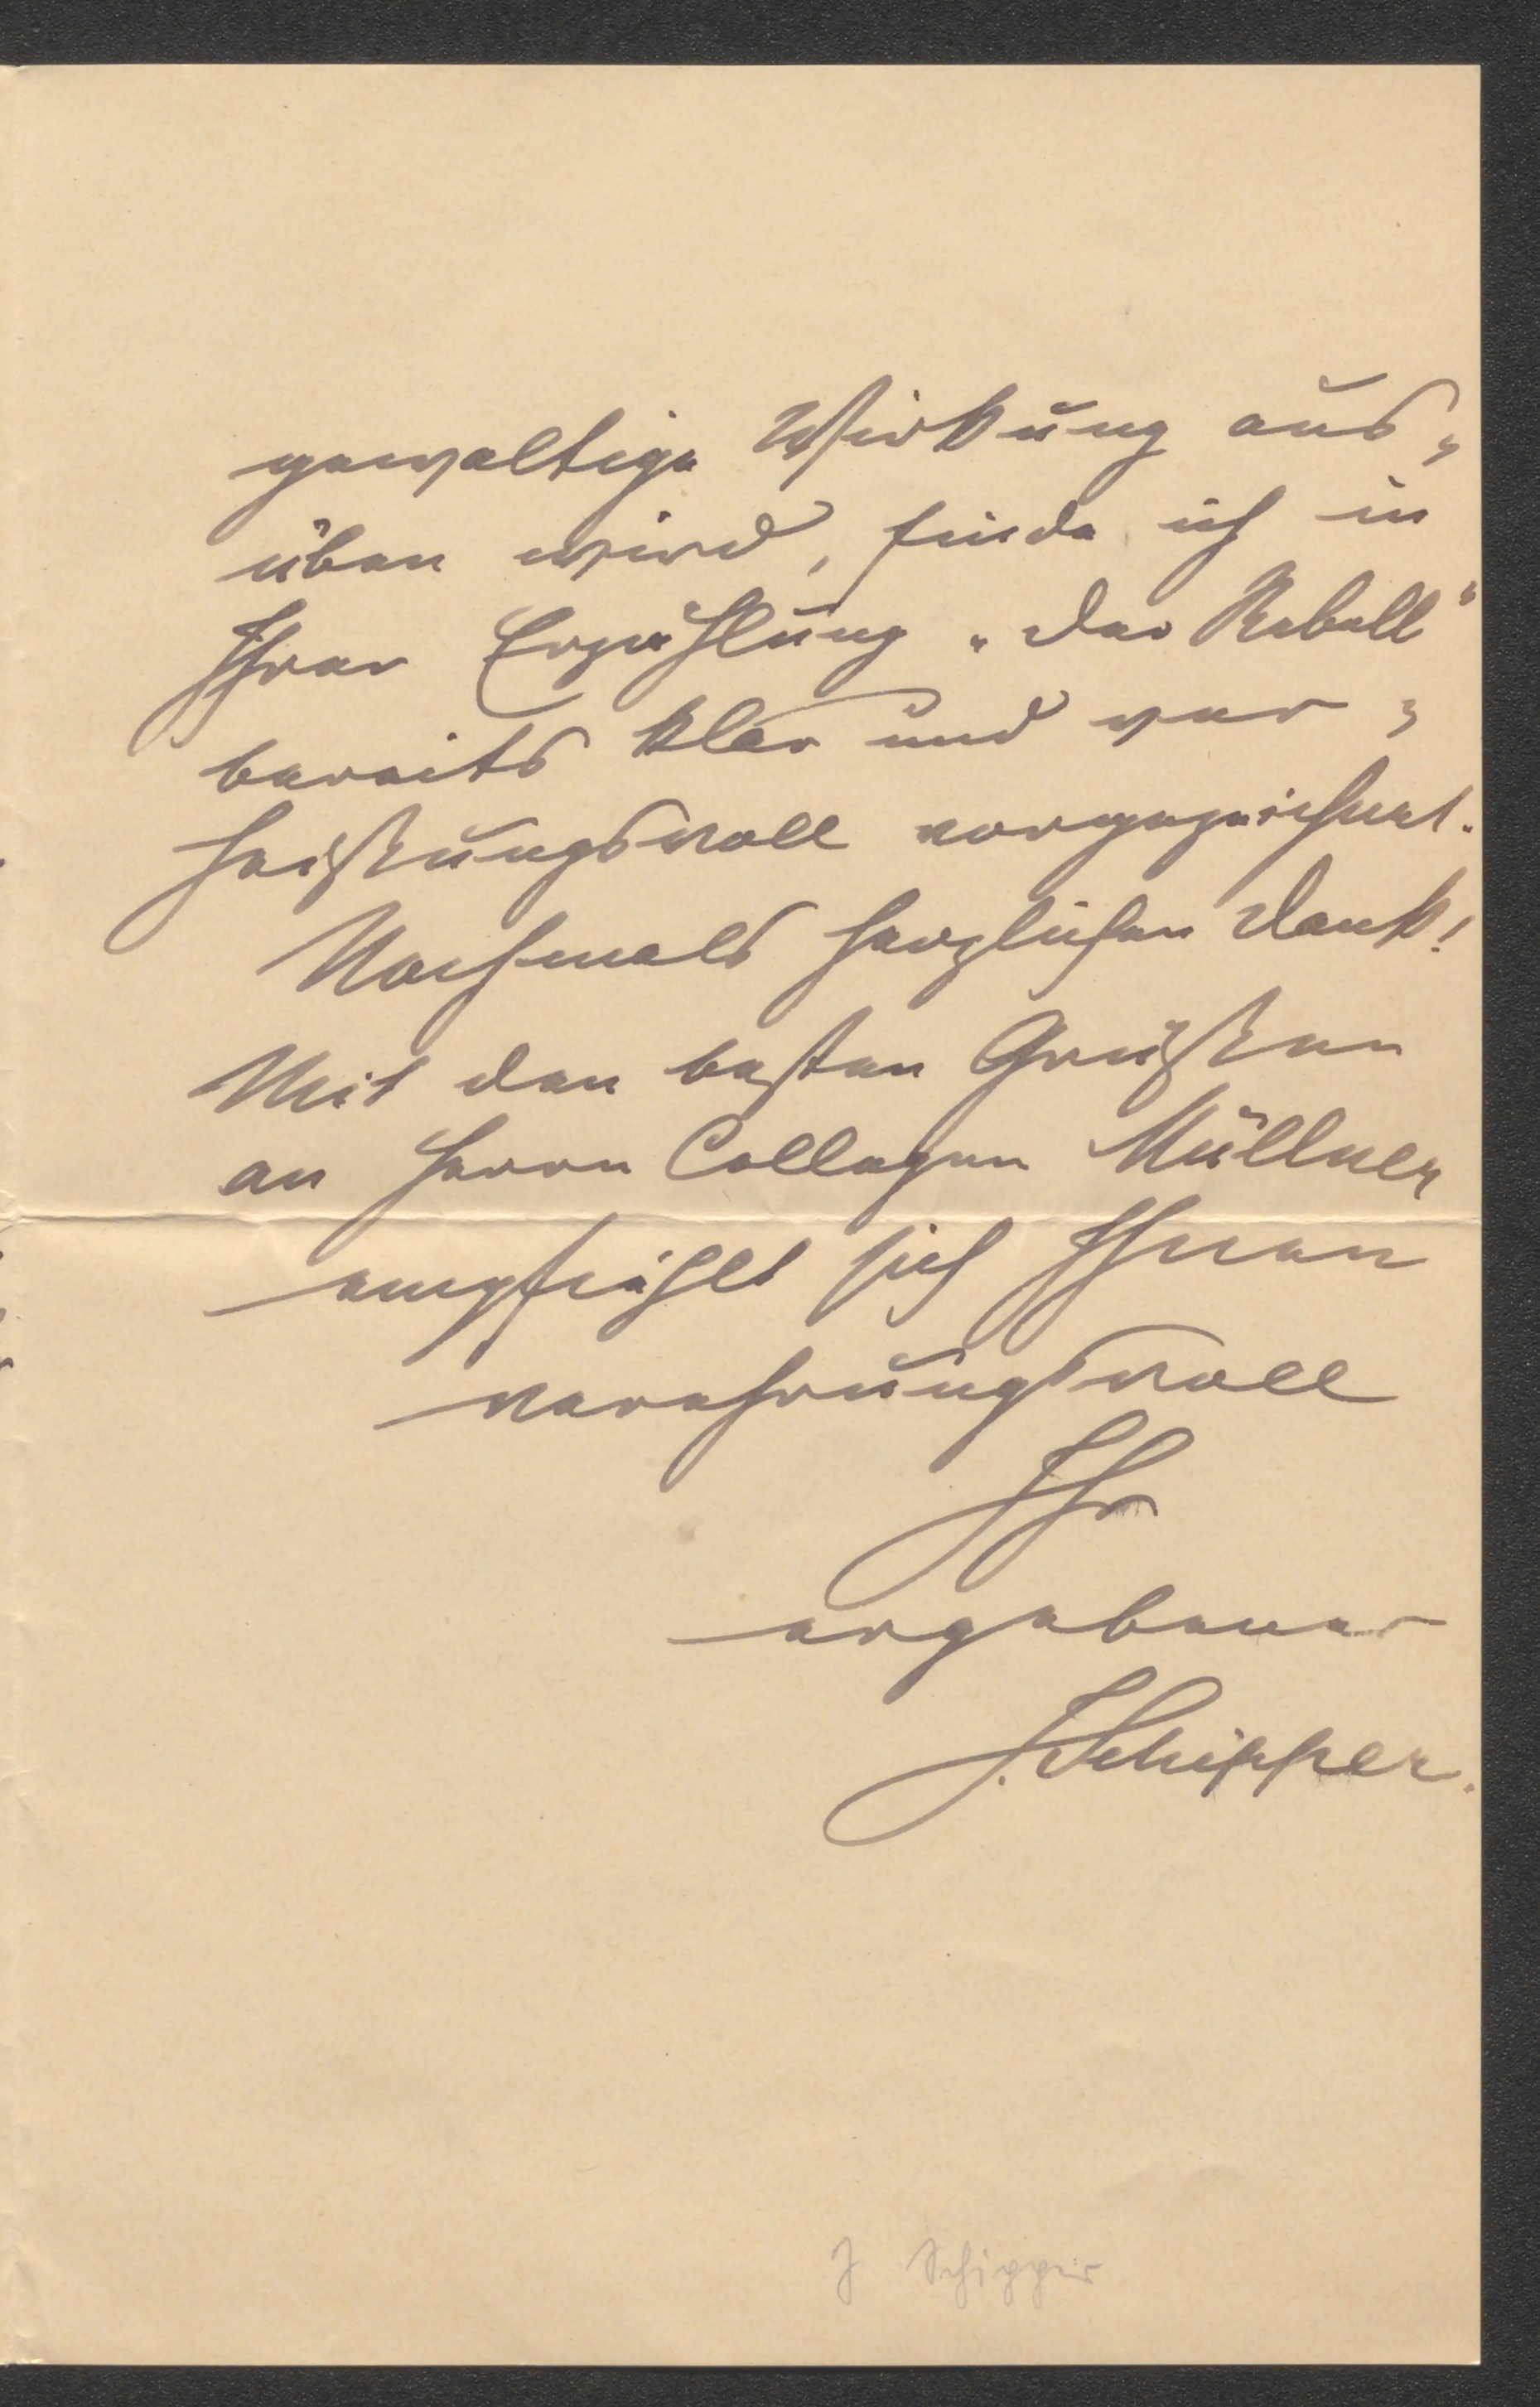 gewaltige Wirkung aus-
üben wird, finde ich in
Ihrer Erzählung „Der Rebell“
bereits klar und ver-
heißungsvoll vorgezeichnet.
Nochmals herzlichen Dank!
Mit den besten Grüßen
an Herrn Collegen Müllner
empfiehlt sich Ihnen
verehrungsvoll
Ihr
ergebener
J. Schipper.
J Schipper